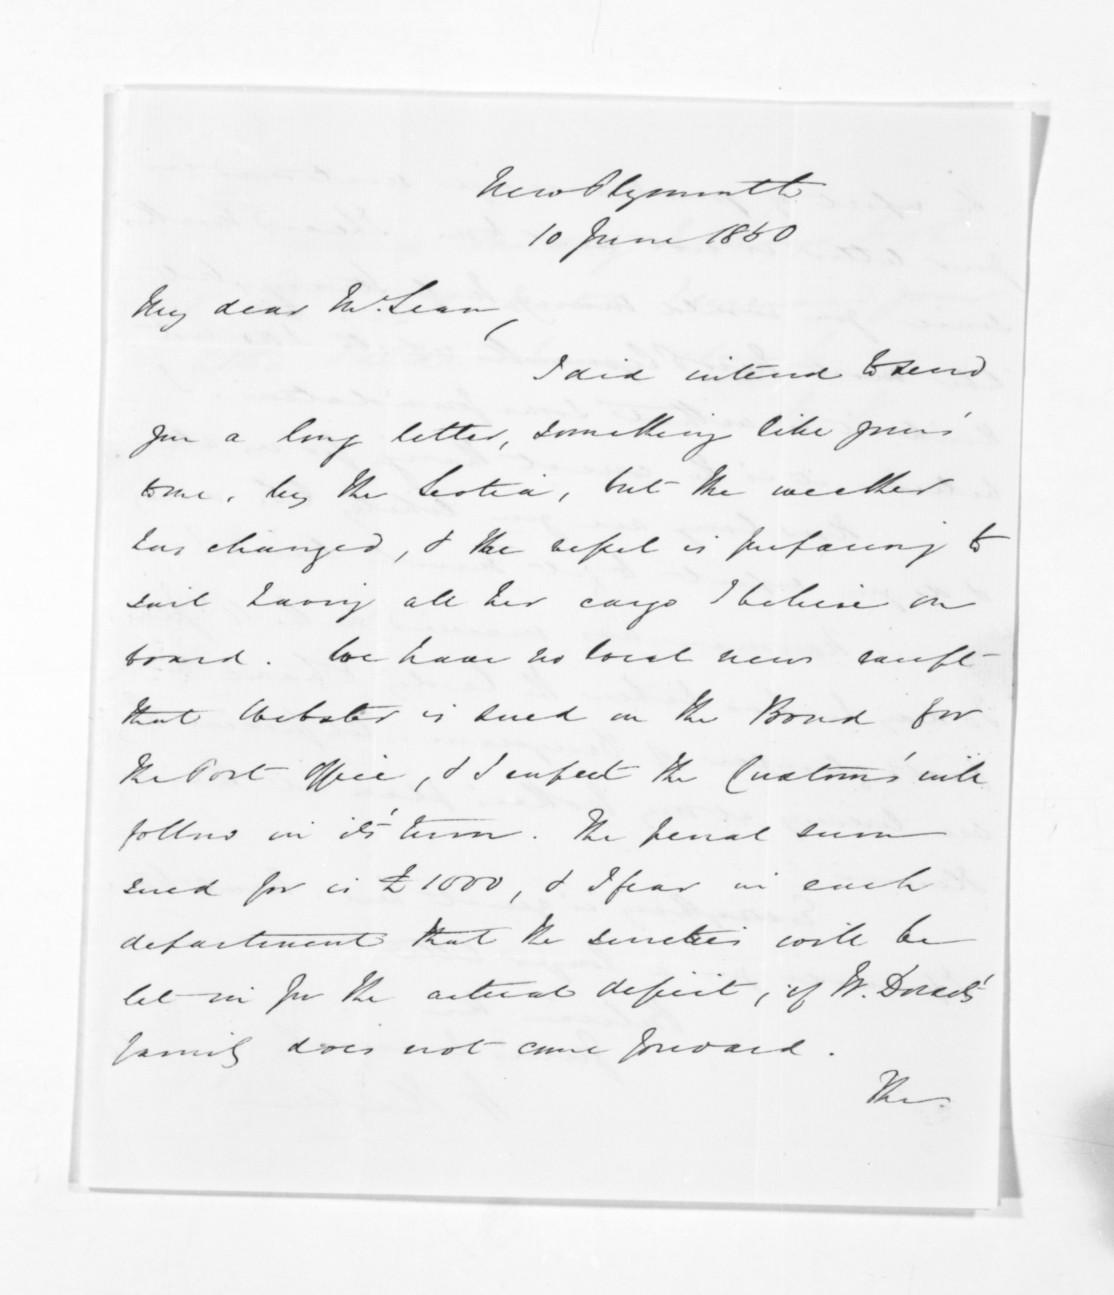 New Plymouth
10 June 1850
My dear McLean,
I did intend to send
you a long letter, something like your's
to me, by the Scotia, but the weather
has changed, & the vessel is preparing to
sail having all her cargo I believe on
board. We have no local news except
that Webster is sued on the Bond for
the Post Office, & I expect the Custom's will
follow in it's turn. The penal sum
sued for is £1000, & I fear in each
department that the sureties will be
let in for the actual deficit, if W. Dorset's
family does not come forward.
The